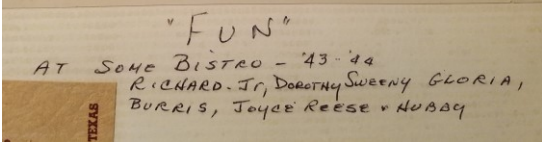 "FUN"
AT SOME BISTRO - '43-'44
RICHARD. Jr, DOROTHY SWEENY GLORIA,
BURRIS, JOYCE REESE & HUBBY
TEXAS